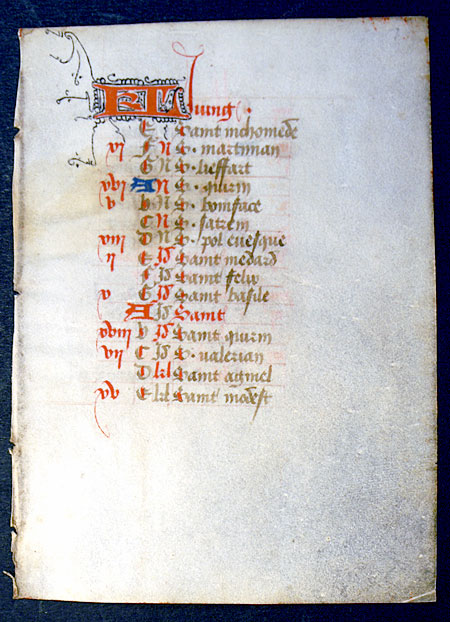 KL Iung.
E Saint nichomede
vi F N S. martinian
G N S. lieffart
xvi A N S. quirin
v b N S. boniface
C N S. satrem
xiii D N S. pol evesque
ii E Id Saint medard
F Id Saint felix
x G Id Saint basile
A Id Saint
xviii b Id Saint quirin
vii C Id S. valerian
D kl Saint agniel
xv E kl Saint modest